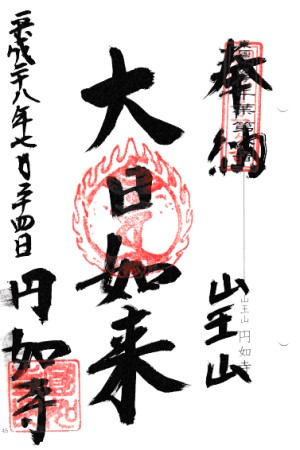 奉納
山王山
山王山 円如寺
大日如来
平成二十八年七月二十四日
円如寺